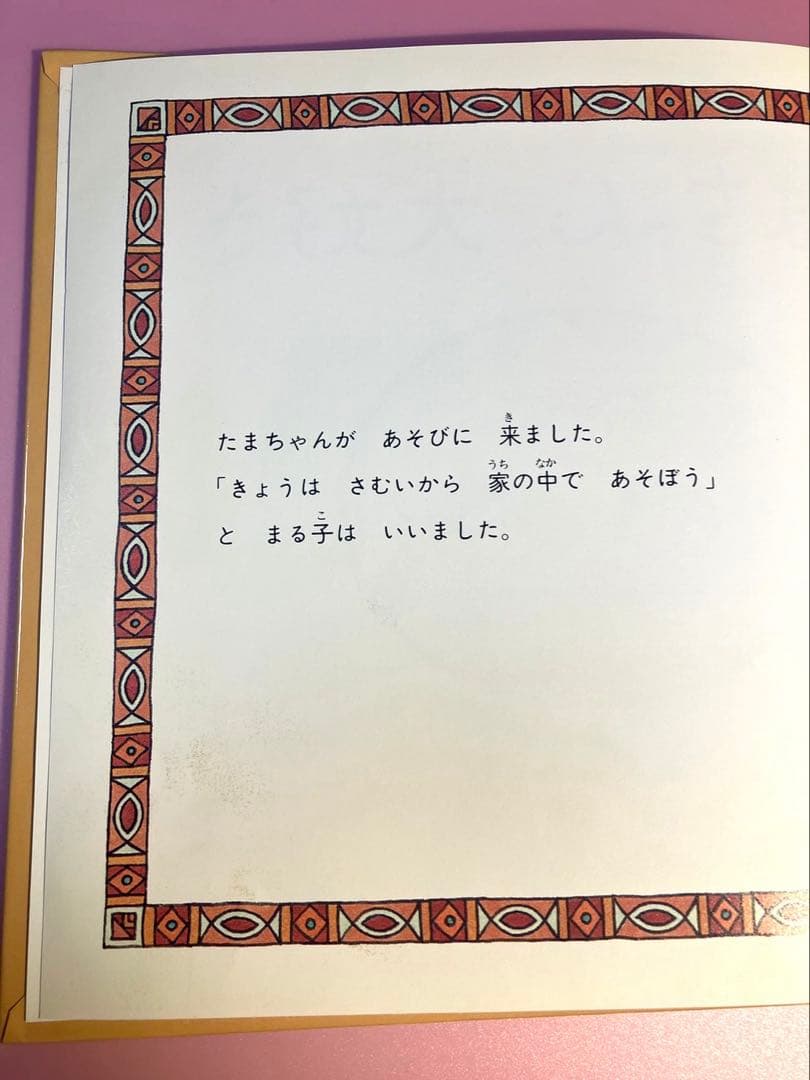 たまちゃんが　あそびに　来ました。
「きょうは　さむいから　家の中で　あそぼう」
と　まる子は　いいました。